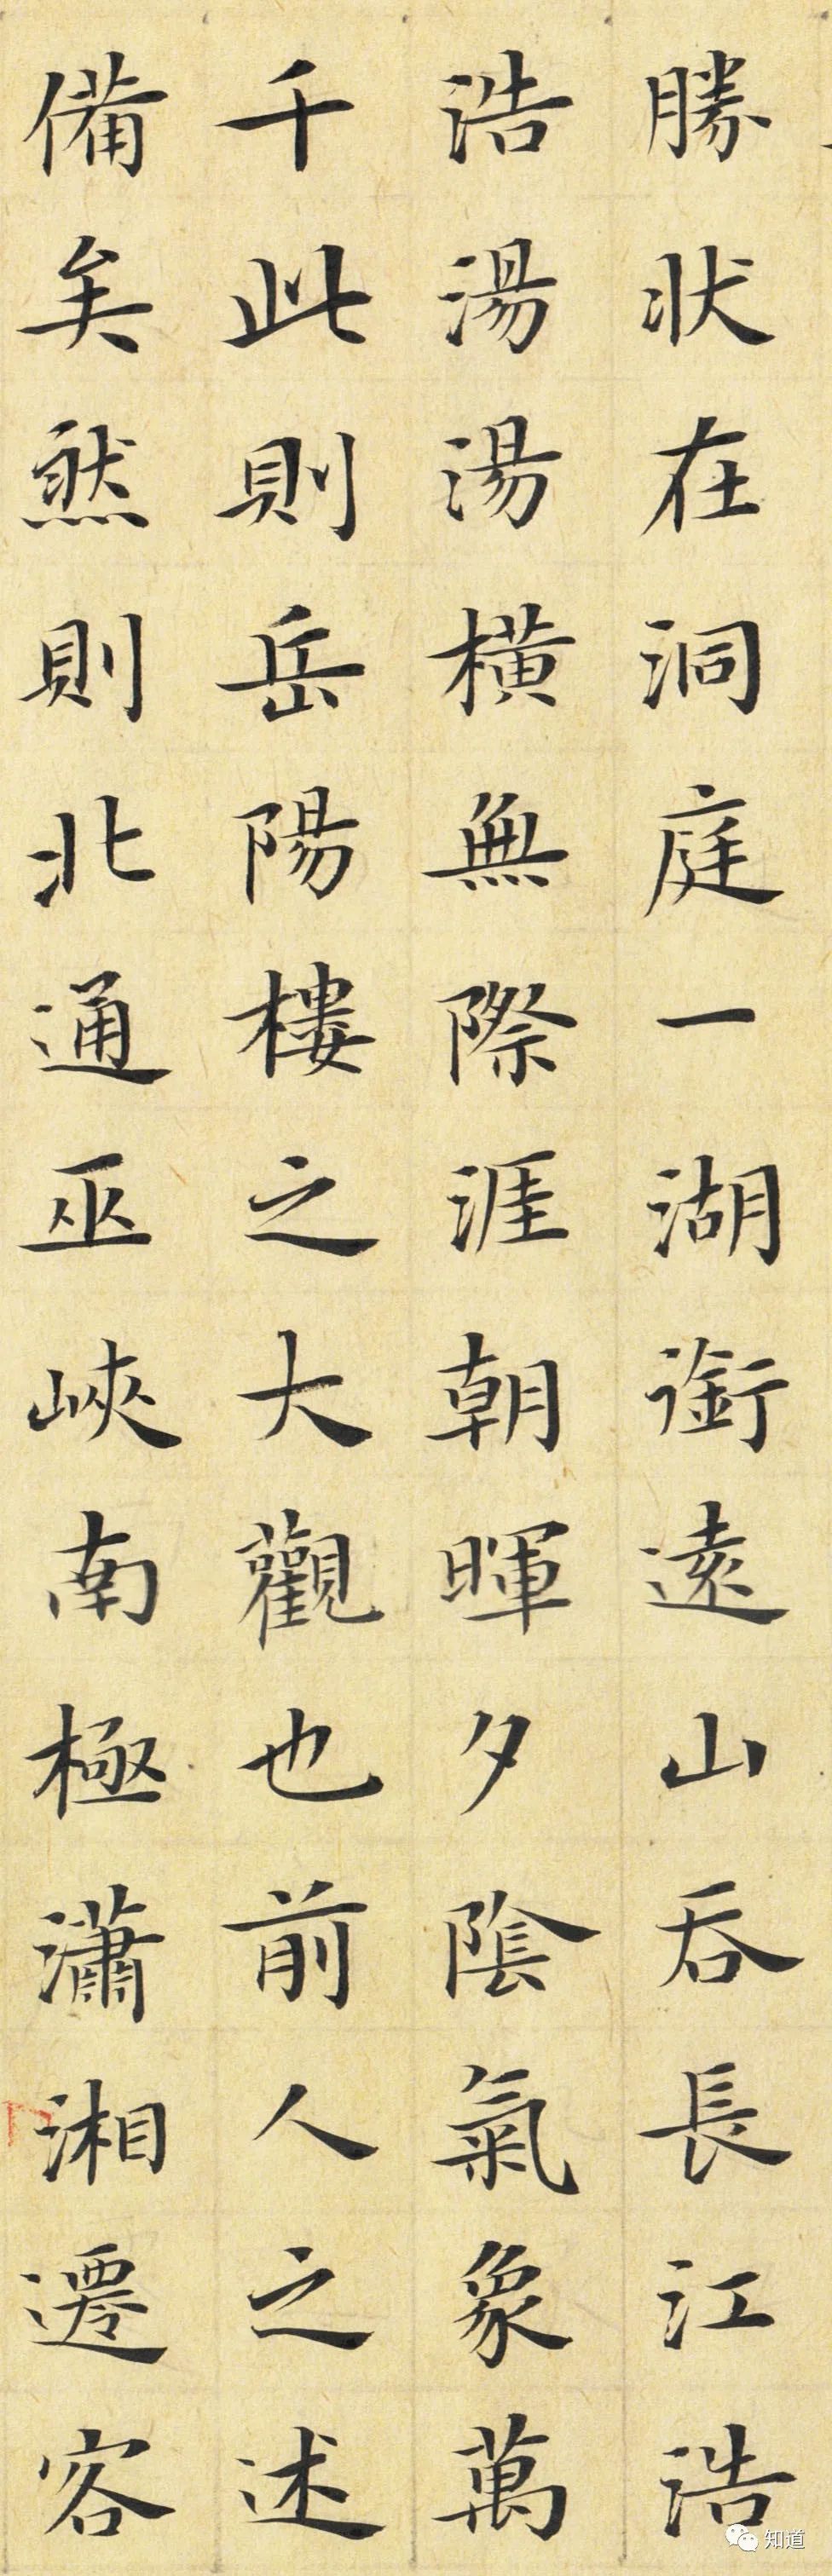 勝狀在洞庭一湖銜遠山吞長江浩
浩湯湯橫無際涯朝暉夕陰氣象萬
千此則岳陽樓之大觀也前人之述
備矣然則北通巫峽南極瀟湘遷客
知道